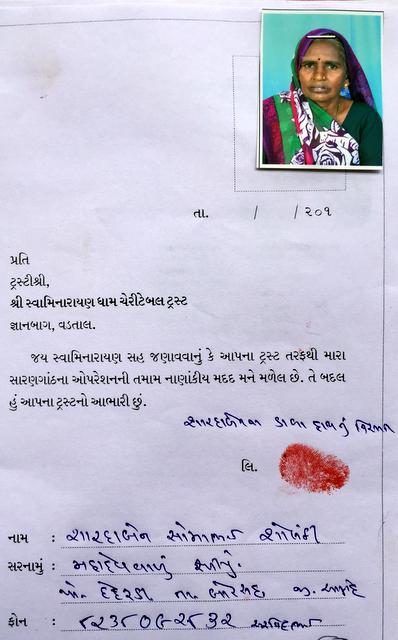 તા. / / ૨૦૧
પ્રતિ
ટ્રસ્ટીશ્રી,
શ્રી સ્વામિનારાયણ ધામ ચેરીટેબલ ટ્રસ્ટ
જ્ઞાનબાગ, વડતાલ.
જય સ્વામિનારાયણ સહ જણાવવાનું કે આપના ટ્રસ્ટ તરફથી મારા
સારણગાંઠના ઓપરેશનની તમામ નાણાંકીય મદદ મને મળેલ છે. તે બદલ
હું આપના ટ્રસ્ટનો આભારી છું.
શારદાબેનના ડાબા હાથનું નિશાન
લિ.
નામ : શારદાબેન સોમાભાઈ સોલંકી
સરનામું : મહાદેવવાળું ફળીયું.
મો. દહેવાડી તા. બોરસદ જી. આણંદ
ફોન :